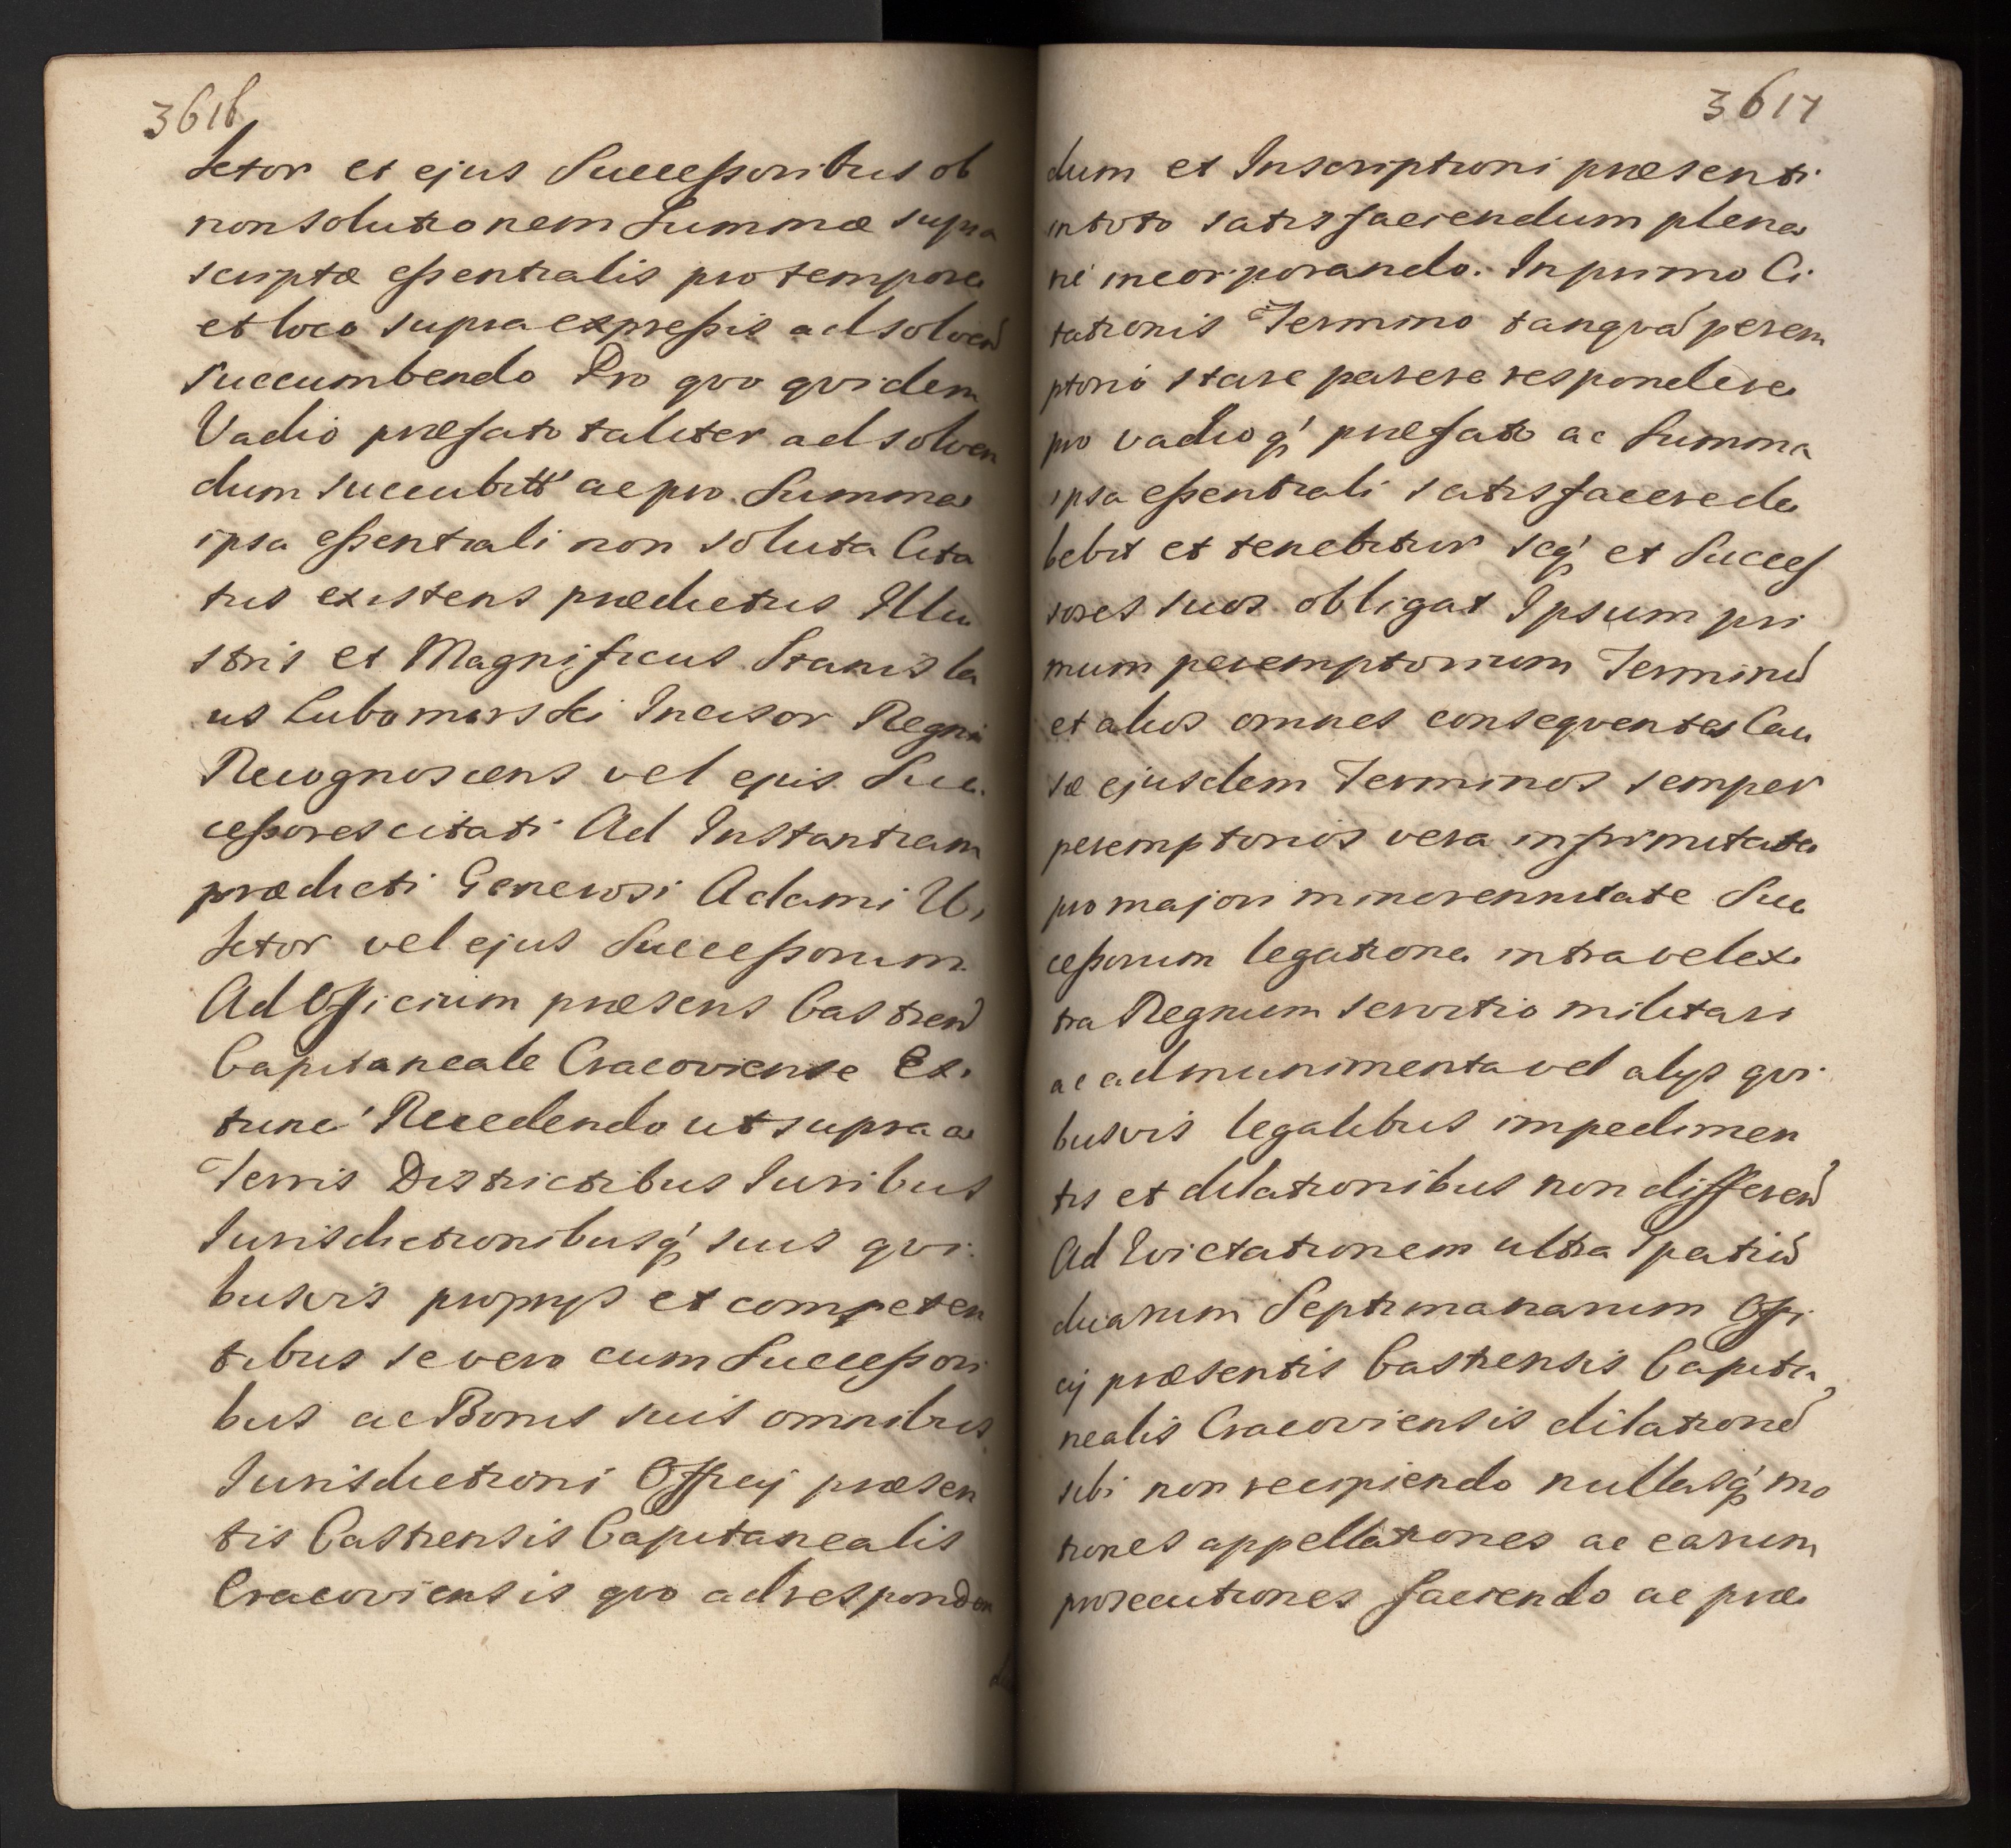 3616
setor et ejus Successoribus ob
nonsolutionem Summæ supra
scriptæ essentialis pro tempore
et loco supra expressis ad solven̄
succumbendo Pro qvo qvidem
Vadio præfato taliter ad solven
dum succubitt' ac pro Summa
ipsa essentiali non soluta Cita
tus existens prædictus Illu
stris et Magnificus Stanisla
us Lubomirski Incisor Regni
Recognoscens vel ejus Suc
cessores citati Ad Instantiam
prædicti Generosi Adami Us
setor vel ejus Successorum
Ad Officium præsens Castren̄
Capitaneale Cracoviense Ex
tunc Recedendo ut supra a
Terris Districtibus Iuribus
Iurisdictionibusq' suis qvi
busvis proprys et competen
tibus se vero cum Successori
bus ac Bonis suis omnibus
Iurisdictioni Officij præsen
tis Castrensis Capitanealis
Cracoviensis qvo ad responden
3617
dum et Inscriptioni præsenti
in toto satisfaciendum plena
rie incorporando. In primo Ci
tationis Termino tanqvā perem
ptorió stare parere respondere
pro vadioq' præfato ac Summa
ipsa essentiali satisfacere de
bebit et tenebitur seq' et Succes
sores suos obligat Ipsum pri
mum peremptorium Terminū
et alios omnes conseqventes Cau
sæ ejusdem Terminos semper
peremptorios vera infirmitate
pro majori minorennitate Suc
cessorum legatione intra vel ex
tra Regnum servitio militari
ac ad munimenta vel alys qvi
busvis legalibus impedimen
tis et dilationibus non differen̄
Ad Evictationem ultra Spatiū
duarum Septimanarum Offi
cij præsentis Castrensis Capita
nealis Cracoviensis dilationē
sibi non recipiendo nullasq' mo
tiones appellationes ac earum
prosecutiones faciendo ac præ